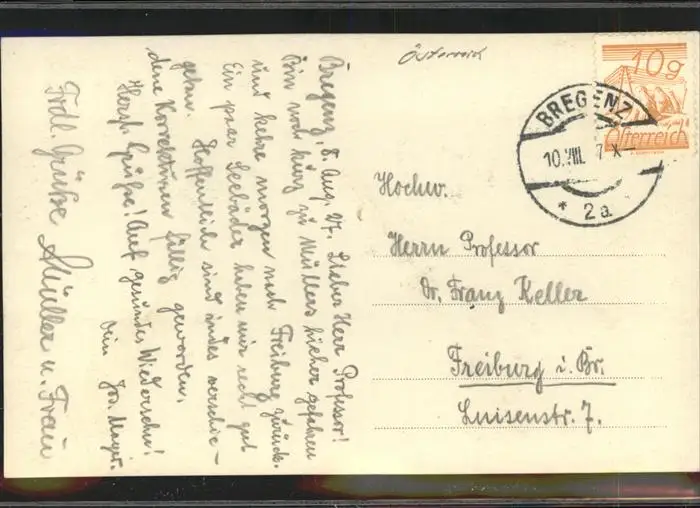 Österreich
10g
Österreich
BREGENZ
10.VIII. 7 X
* 2a
Bregenz, 8. Aug. 27. Lieber Herr Professor!
Bin noch kurz zu Müllers hieher gefahren
und kehre morgen nach Freiburg zurück.
Ein paar Seebäder haben mir recht gut
getan. Hoffentlich sind indes verschie-
dene Korrekturen fällig geworden.
Herzl. Grüße! Auf gesundes Wiedersehn!
Dein Jos. Mayer.
Frdl. Grüße Müller u. Frau
Hochw.
Herrn Professor
Dr. Franz Keller
Freiburg i. Br.
Luisenstr. 7.